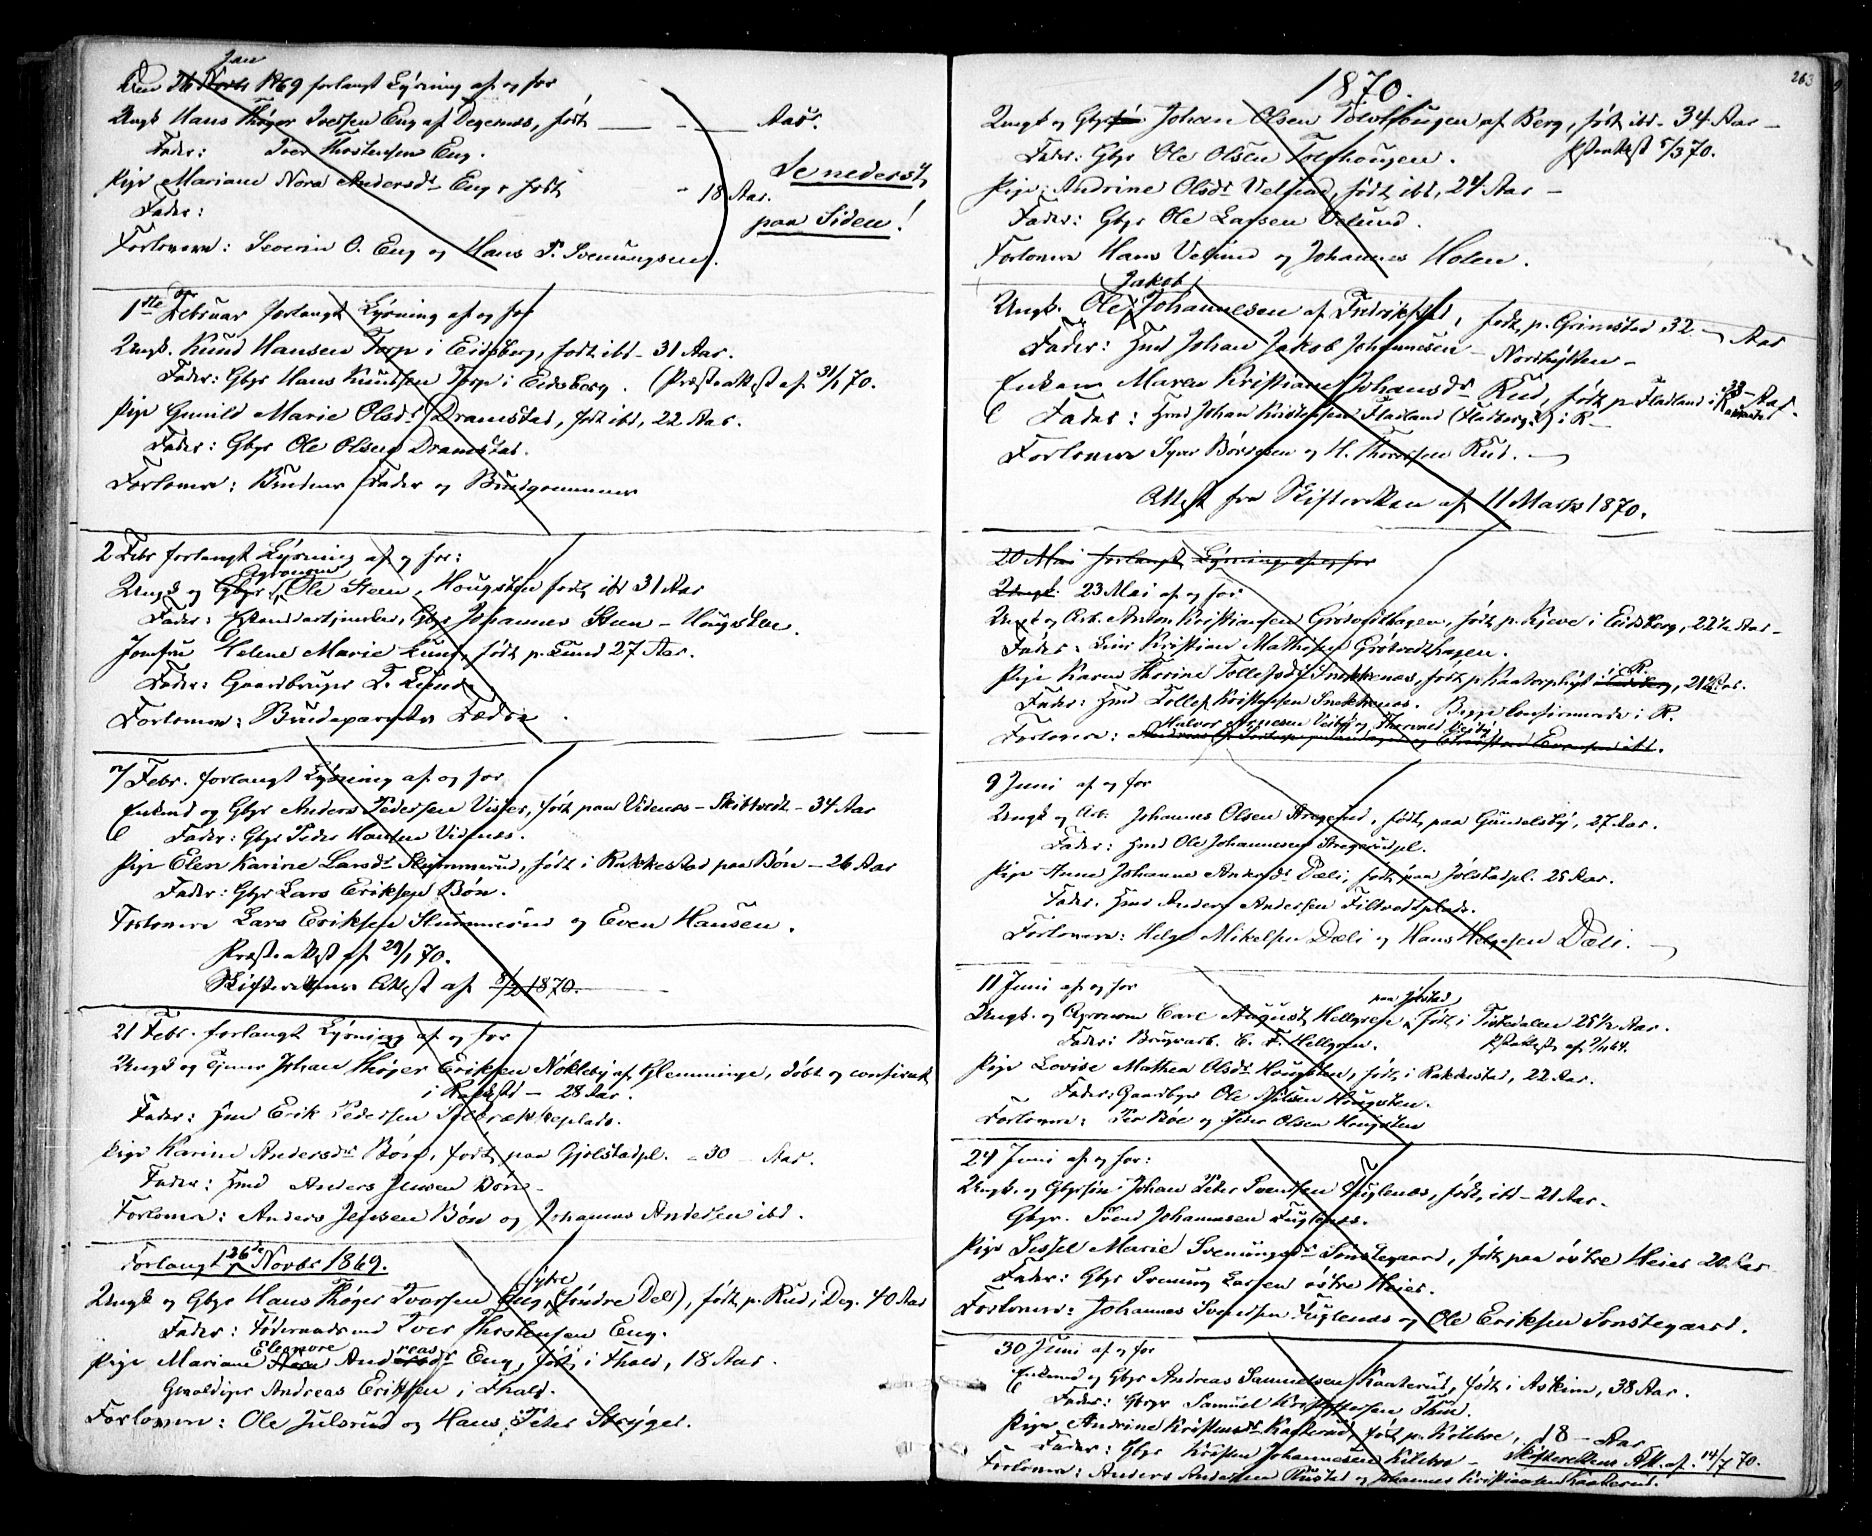 Jan
Den 26 Novbr 1869 forlangt Lysning af og for
Ungk Hans Thøger Iversen Eng af Degernes, født Aar.
Fader: Iver Thostensen Eng.
Pige Mariane Nora Andersdr Eng, født 18 Aar.
Fader:
Forlovere: Severin O. Eng og Hans P. Svenungsen.
Se nederst
paa Siden!
1ste Februar forlangt Lysning af og for
Ungk. Knud Hansen Torp i Eidsberg, født ibd - 31 Aar.
Fader: Gbgr Hans Knudsen Torp i Eidsberg. (Præsteattest af 31/1 70.
Pige Gunild Marie Olsdr Dramstad, født ibd, 22 Aar.
Fader: Gbgr Ole Olsen Dramstad.
Forlovere: Brudens Fader og Brudgommens
2 Febr forlangt Lysning af og for:
Agronom
Ungk og Gbgr Ole Steen, Hougsten født ibd 31 Aar
Fader: Gbgr Johannes Steen - Hougsten.
Jomfru Helene Marie Lund, født p. Lund 27 Aar.
Fader: Gaardbruger T. Lund
Forlovere: Brudeparrets Fædre.
7 Febr. forlangt Lysning af og for
Enkmd og Gbgr Anders Pedersen Vister, født paa Vidnæs - Skibtvedt - 34 Aar
Fader: Gbgr Peder Hansen Vidnæs.
Pige Elen Karine Larsdr Skammerud, født i Rakkestad paa Bøn - 26 Aar
Fader: Gbgr Lars Eriksen Bøn.
Forlovere Lars Eriksen Skammerud og Even Hansen.
Præsteattest af 29/1 70.
Skifterettens Attest af 8/2 1870.
21 Febr. forlangt Lysning af og for
Ungk og Johan Thøger Eriksen Nøkleby af Glemminge, døbt og confirmert
i Rakkestd - 28 Aar.
Fader: Hmd Erik Pedersen
Pige Karine Andersdr Bøn, født paa Gjølstadpl. - 30 - Aar.
Fader: Hmd Anders Jensen Bøn
Forlovere: Anders Jensen Bøn og Johannes Andersen ibd.
Forlangt 26de Novbr 1869.
Ytre
Ungk og Gbgr Hans Thøger Ivarsen Eng (søndre Del), født p. Rud i Deg. 40 Aar
Fader: Føderaadsmd Iver Thostensen Eng.
Eleonore reas
Pige Mariane Nora Andersdr Eng, født i Fhald, 18 Aar.
Andreas Eriksen i Fhald.
Forlovere: Ole Julsrud og Hans Peter Strøger.
263
1870.
Ungk og Gbgrsøn Johan Olsen Tolvhougen af Berg, født ibd - 34 Aar -
Pr.attest 5/3 70.
Fader: Gbgr Ole Olsen Tolvhougen.
Pige: Andrine Olsdr Velund, født ibd, 24 Aar -
Fader: Gbgr Ole Larsen Velund.
Forlovere Hans Velund og Johannes Holen.
Jakob
Ungk. Ole Johannesen af Fredrikshald, født p. Grimstad 32 - Aar
Fader: Hmd Johan Jakob Johannesen - Nordhytten -
Enken Maren Kristiane Johansdr Rud, født p Fladland i R 38 - Aar.
Fader: Hmd Johan Kristensen Fladland (Fladberg?) i R -
Forlovere Syver Børresen og H. Thoresen Rud. -
Attest fra Skifteretten af 11 Marts 1870.
20 Mai forlangt Lysning af og for
Ungk. 23 Mai af og for
Ungk og Arb. Anton Kristiansen Grøtvedthagen, født p. Kjeve i Eidsberg, 22½ Aar -
Fader: Kristian Mathisen Grøtvedthagen.
Pige Karen Thorine Tollefsdr Snekkenæs, født p i R. 21 Aar.
Fader: Hmd Tollef Kristensen Snekkenæs. Begge Confirmerede i R.
Halvor Arnesen Visby og Thorvald Visby
Forlovere:
9 Juni af og for
Ungk og Arb. Johannes Olsen Stregerud, født paa Gudelsby, 27 Aar.
Fader: Hmd Ole Johannesen Stregerudpl.
Pige Anne Johanne Andersdr Dæli, født paa Jølstadpl. 25 Aar.
Fader: Hmd Anders Andersen
Forlovere: Helge Mikelsen Dæli og Hans Helgesen Dæli.
11 Juni af og for
paa Jølstad
Ungk. og Agronom Carl August Hellgren, født i Tistedalen 25½ Aar.
Fader: Brugsarb. C. F. Hellgren.
Pige Lovise Mathea Olsdr Hougsten, født i Rakkestad, 22 Aar.
Fader: Gaardbgr Ole Nilsen Hougsten.
Forlovere: Per Bøe og Peder Olsen Hougsten
24 Juni af og for:
Ungk. og Gbgrsøn Johan Peter Svendsen Fuglenæs, født ibd - 21 Aar.
Gbgr. Svend Johannesen Fuglenæs.
Pige Sessel Marie Svenungsdr Sønstegaard, født paa østre Heier 20 Aar
Fader: Gbgr Svenung Larsen østre Heier.
Forlovere: Johannes Svendsen Fuglenæs og Ole Eriksen Sønstegaard.
30 Juni af og for
Enkemd og Gbgr Andreas Samuelsen Kaaterud, født i Askim, 38 Aar.
Fader: Gbgr Samuel Kristoffersen
Pige Andrine Kristensdr Kaaterud, født p. Kilebo, 18 - Aar
Fader: Gbgr Kristen Johannesen Kilebo - Skifterettens Att. af 14/7 70.
Forlovere: Anders Andersen Rustad og Johannes Kristiansen Kaaterud.